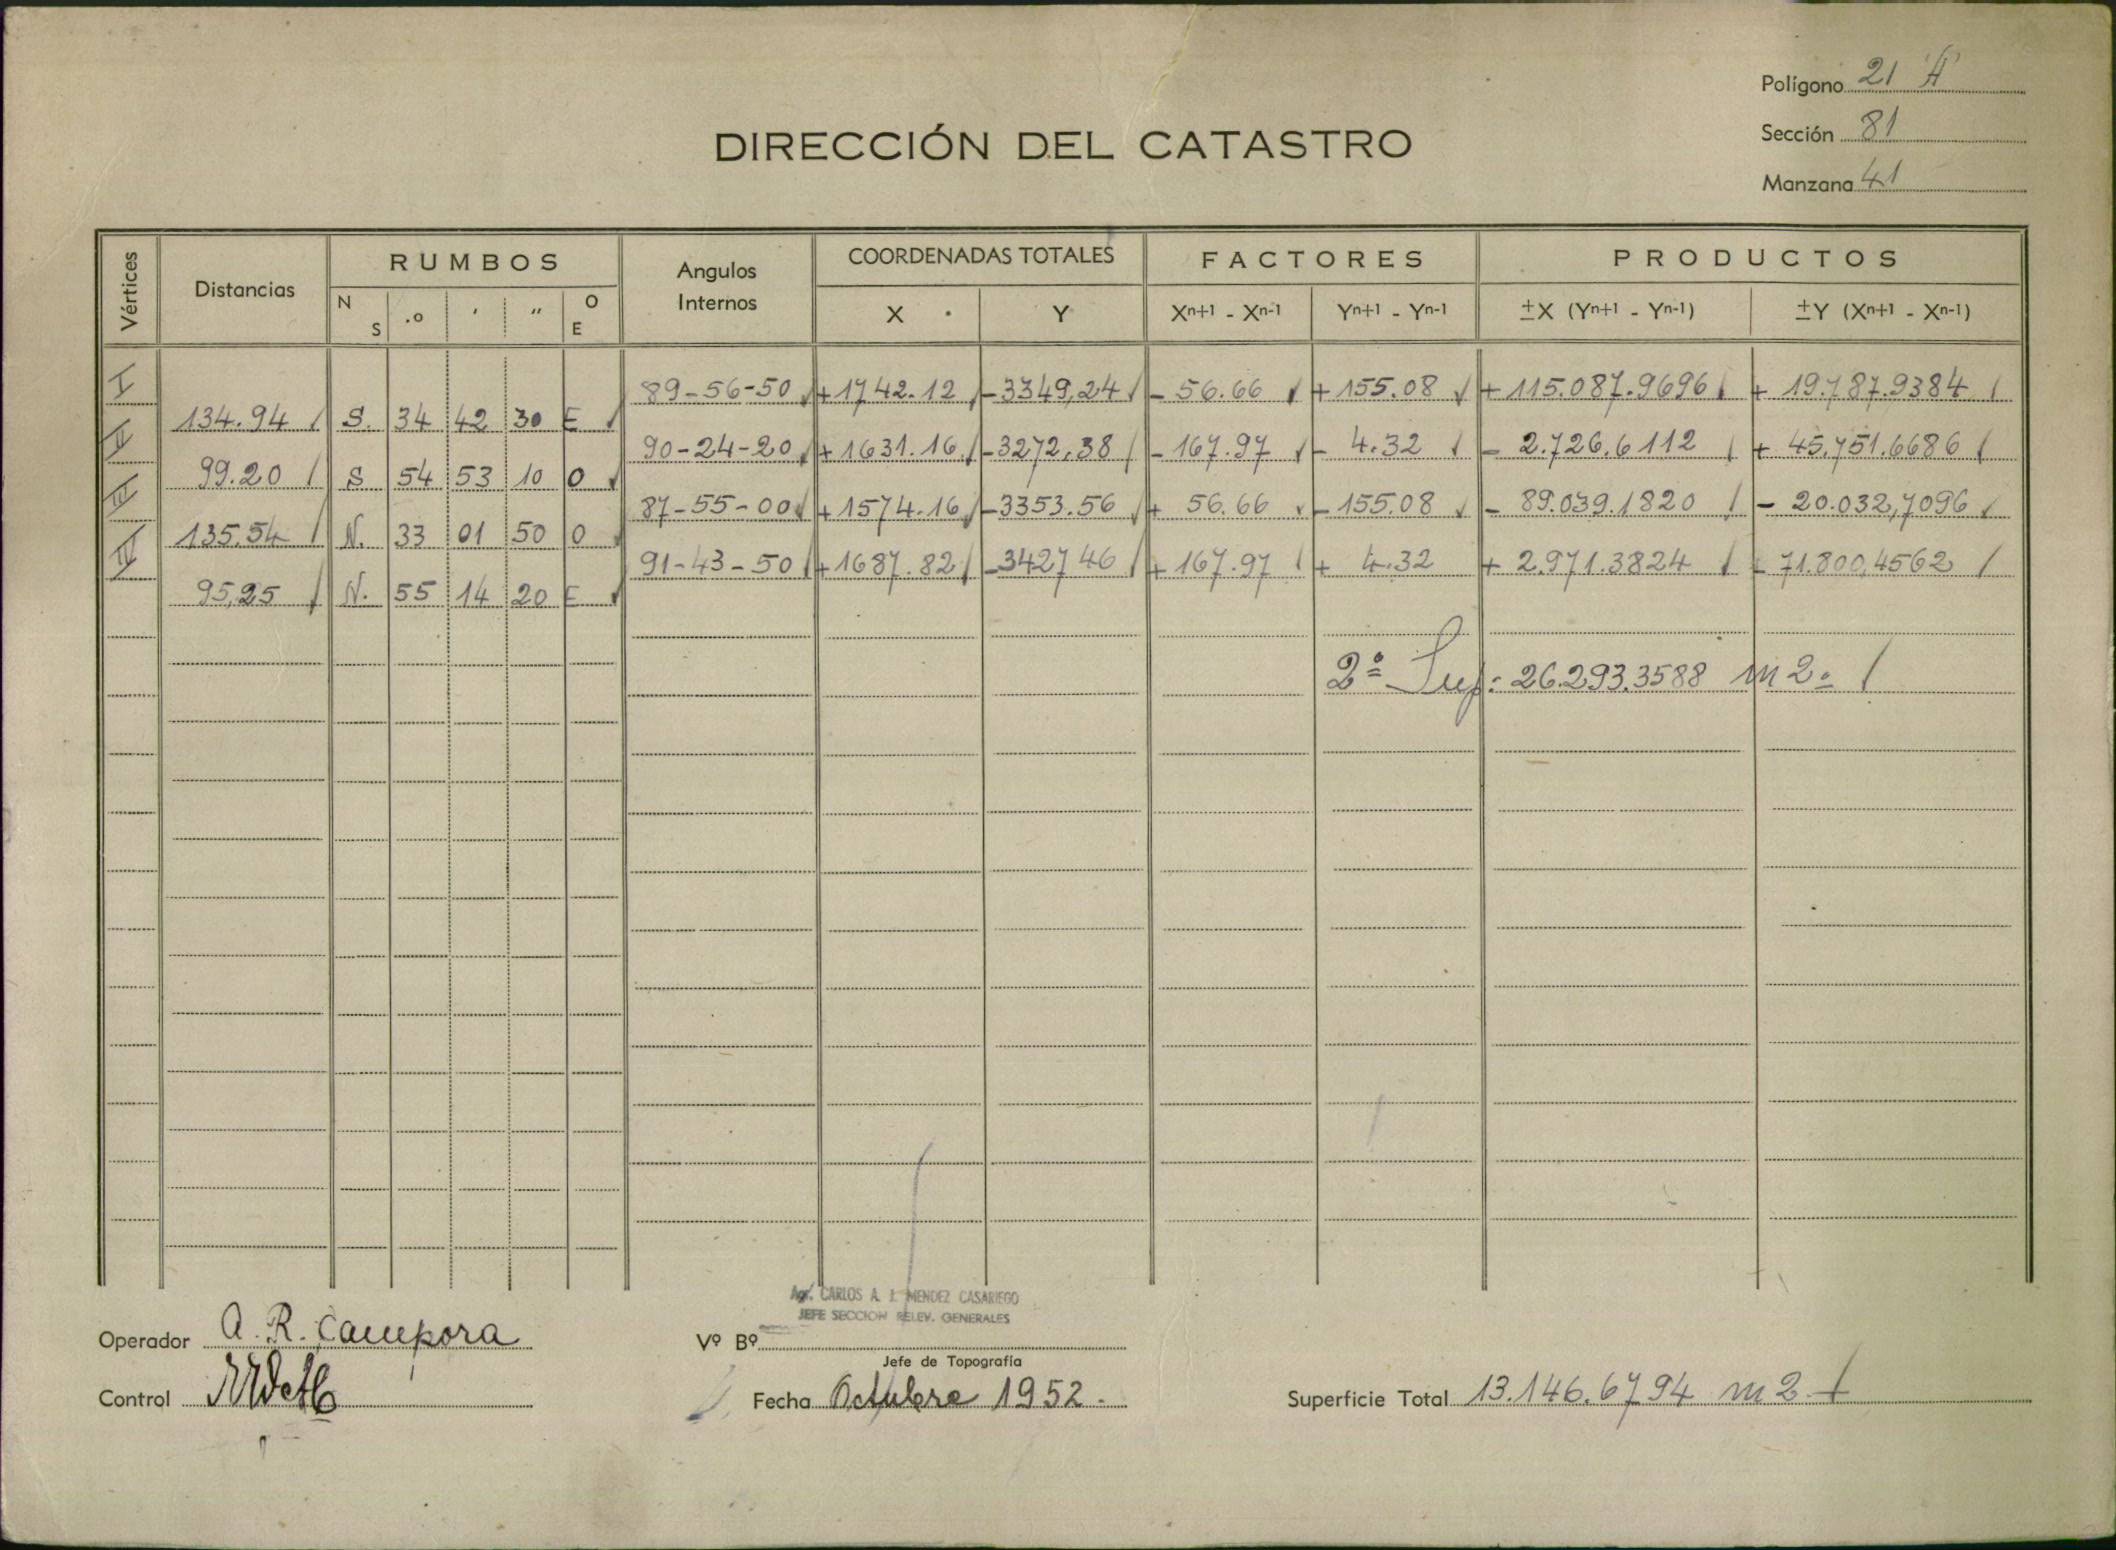 Polígono 21 "A"
Sección 81
Manzana 41
DIRECCIÓN DEL CATASTRO
Vértices Distancias RUMBOS Angulos Internos COORDENADAS TOTALES FACTORES PRODUCTOS
N S .o ' " O E X Y Xn+1 - Xn-1 Yn+1 - Yn-1 ±X (Yn+1 - Yn-1) ±Y (Xn+1 - Xn-1)
I 89-56-50 +1742.12 -3349,24 - 56.66 +155.08 + 115.087.9696 + 19.787.9384
134.94 S. 34 42 30 E
II 90-24-20 +1631.16 -3272,38 -167.97 - 4.32 - 2.726.6112 + 45.751.6686
99.20 S 54 53 10 O
III 87-55-00 +1574.16 -3353.56 + 56.66 -155.08 - 89.039.1820 - 20.032,7096
135.54 N. 33 01 50 O
IV 91-43-50 +1687.82 -3427 46 +167.97 + 4.32 + 2.971.3824 - 71.800,4562
95,25 N. 55 14 20 E
2º Sup: 26.293.3588 m2.
Agr. CARLOS A. J. MENDEZ CASARIEGO
JEFE SECCION RELEV. GENERALES
Operador A. R. Campora
Vº Bº
Jefe de Topografía
Control
Fecha Octubre 1952.
Superficie Total 13.146.6794 m2